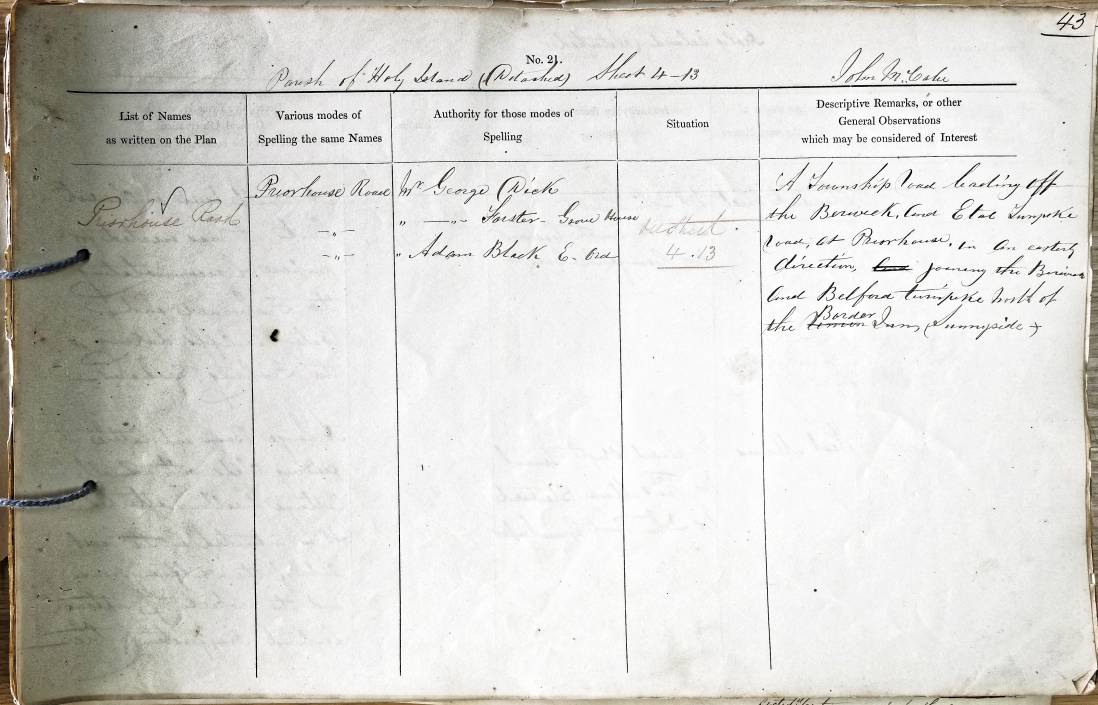 43
No. 21.
Parish of Holy Island (Detached) Sheet 4-13
John McCabe
List of Names
as written on the Plan
Various modes of
Spelling the same Names
Authority for those modes of
Spelling
Situation
Descriptive Remarks, or other
General Observations
which may be considered of Interest
Priorhouse Road
Priorhouse Road
-"-
-"-
Mr George Dick
" -"- Forster - Grove House
" Adam Black E. Ord
4.13
A Township road leading off
the Berwick, and Etal Turnpike
road, at Priorhouse, in an easterly
direction, and joining the Berwick
and Belford turnpike North of
the Union Border Inn, (Sunnyside)